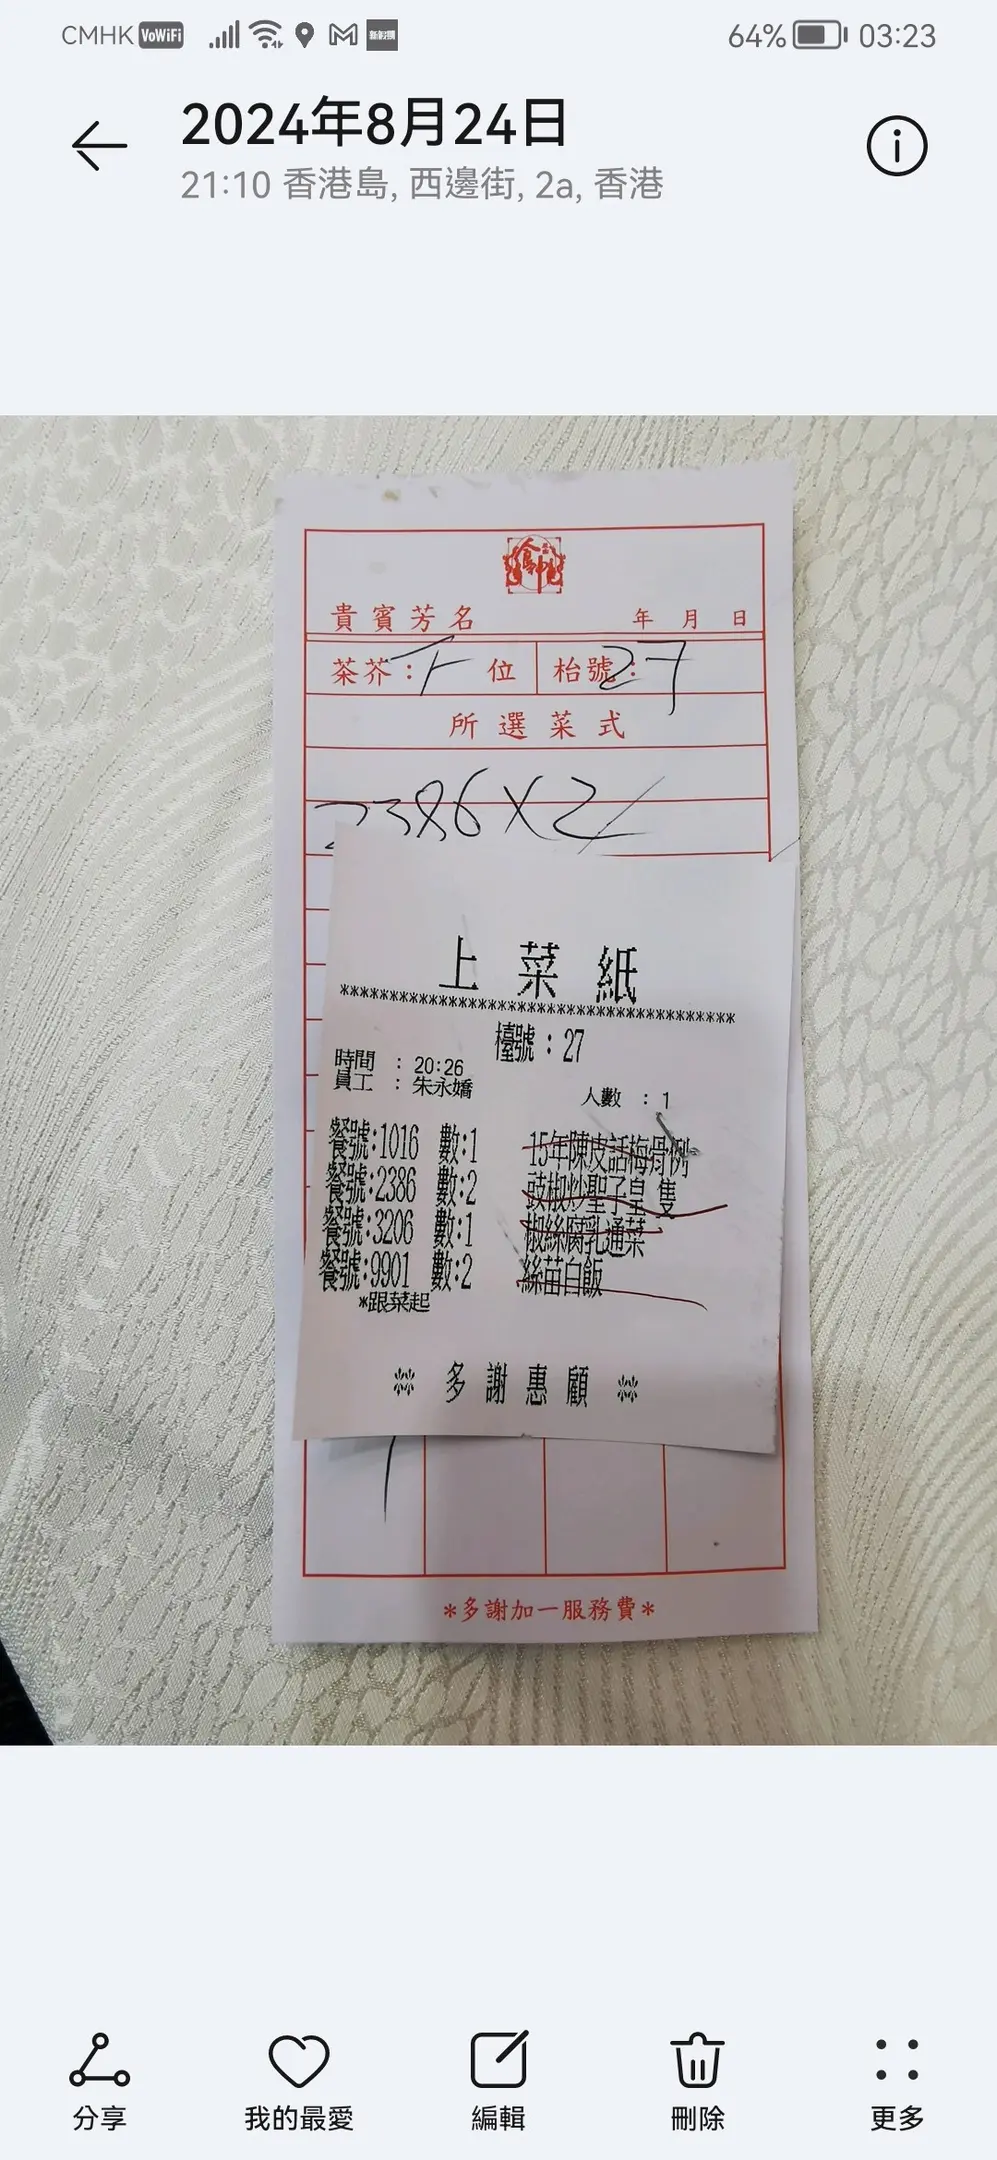 CMHK VoWiFi 64% 03:23
2024年8月24日
21:10 香港島, 西邊街, 2a, 香港
貴賓芳名 年 月 日
茶芥: 位 枱號: 27
所選菜式
2386 X 2
上菜紙
**************************************
檯號 : 27
時間 : 20:26
員工 : 朱永嬌
人數 : 1
餐號:1016 數:1 15年陳皮話梅骨例
餐號:2386 數:2 豉椒炒聖子皇 隻
餐號:3206 數:1 椒絲腐乳通菜
餐號:9901 數:2 絲苗白飯
*跟菜起
多謝惠顧
*多謝加一服務費*
分享 我的最愛 編輯 刪除 更多